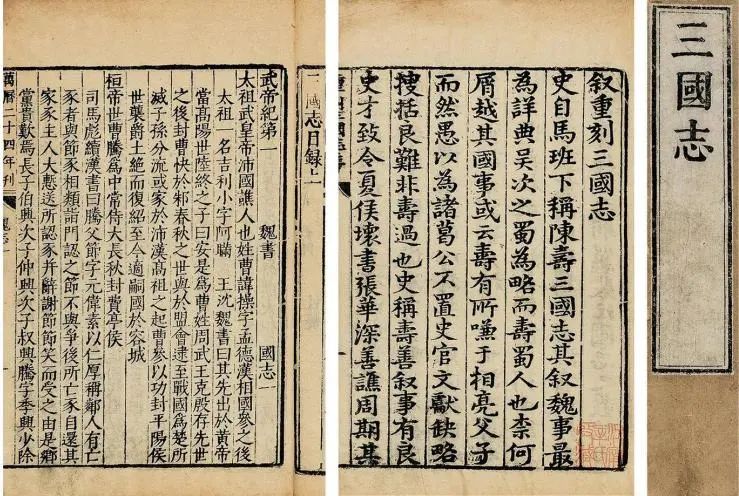 三國志
叙重刻三國志
史自馬班下稱陳壽三國志其叙魏事最
為詳典吴次之蜀為略而壽蜀人也柰何
屑越其國事或云壽有所嗛于相亮父子
而然愚以為諸葛公不置史官文獻缺略
搜括良難非壽過也史稱壽善叙事有良
史才致令夏侯壞書張華深善譙周期其
國志目録上
武帝紀第一 魏書 國志一
太祖武皇帝沛國譙人也姓曹諱操字孟德漢相國參之後
太祖一名吉利小字阿瞞 王沈魏書曰其先出於黃帝
當高陽世陸終之子曰安是爲曹姓周武王克殷存先世
之後封曹俠於邾春秋之世與於盟會逮至戰國爲楚所
滅子孫分流或家於沛漢高祖之起曹參以功封平陽侯
世襲爵土絕而復紹至今適嗣國於容城
桓帝世曹騰爲中常侍大長秋封費亭侯
司馬彪續漢書曰騰父節字元偉素以仁厚稱鄰人有亡
豕者與節豕相類詣門認之節不與爭後所亡豕自還其
家豕主人大慙送所認豕并辭謝節節笑而受之由是鄉
黨貴歎焉長子伯興次子仲興次子叔興騰字季興少除
萬曆二十四年刊 魏志一